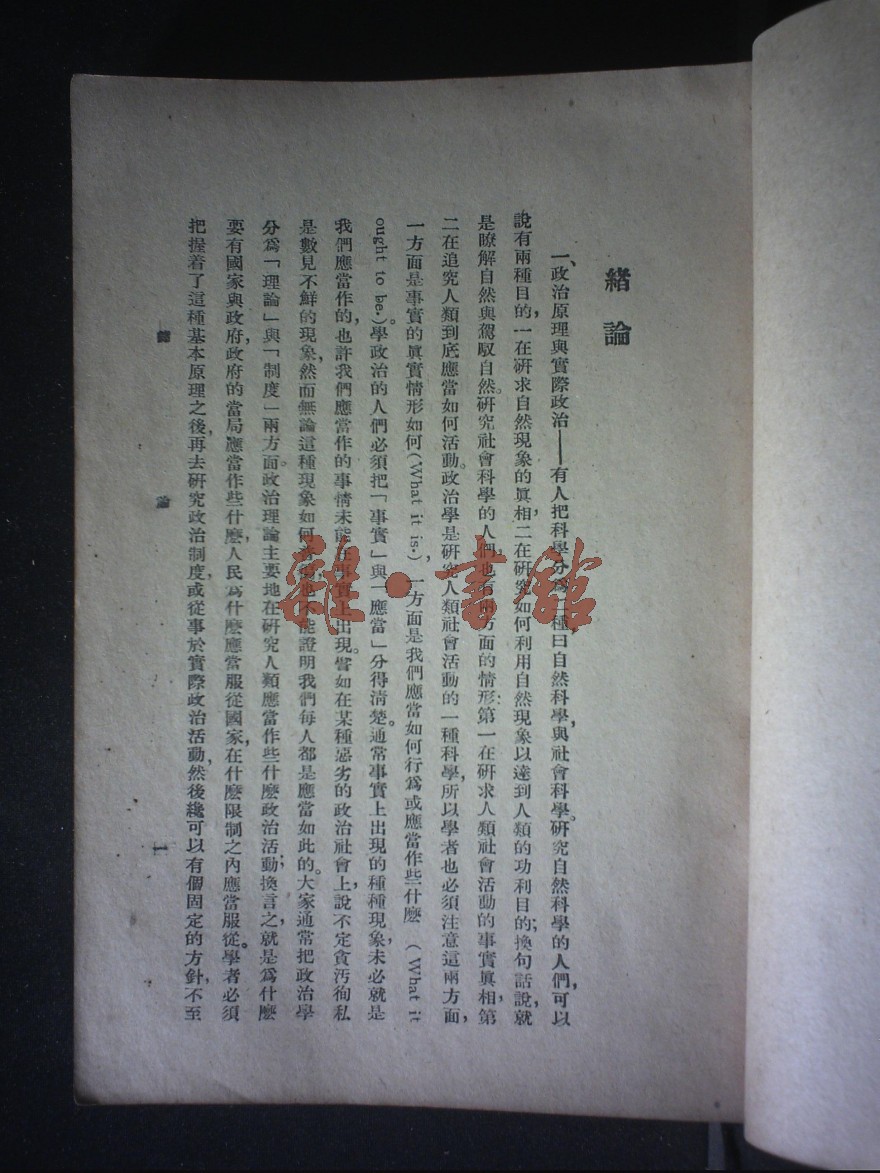 緒論
一、政治原理與實際政治——有人把科學分爲二種曰自然科學與社會科學。研究自然科學的人們，可以
說有兩種目的，一在研求自然現象的眞相，二在研究如何利用自然現象以達到人類的功利目的；換句話說，就
是瞭解自然與駕馭自然。研究社會科學的人們也有兩方面的情形：第一在研求人類社會活動的事實眞相，第
二在追究人類到底應當如何活動。政治學是研究人類社會活動的一種科學，所以學者也必須注意這兩方面，
一方面是事實的眞實情形如何(What it is.)，一方面是我們應當如何行爲或應當作些什麽 (What it
ought to be.)。學政治的人們必須把「事實」與「應當」分得清楚。通常事實上出現的種種現象，未必就是
我們應當作的，也許我們應當作的事情未能在事實上出現。譬如在某種惡劣的政治社會上，說不定貪汚徇私
是數見不鮮的現象，然而無論這種現象如何 也不能證明我們每人都是應當如此的。大家通常把政治學
分爲「理論」與「制度」兩方面。政治理論主要地在研究人類應當作些什麽政治活動；換言之，就是爲什麽
要有國家與政府，政府的當局應當作些什麽，人民爲什麽應當服從國家，在什麽限制之內應當服從。學者必須
把握着了這種基本原理之後，再去研究政治制度，或從事於實際政治活動，然後纔可以有個固定的方針，不至
緒論 一
雜·書館